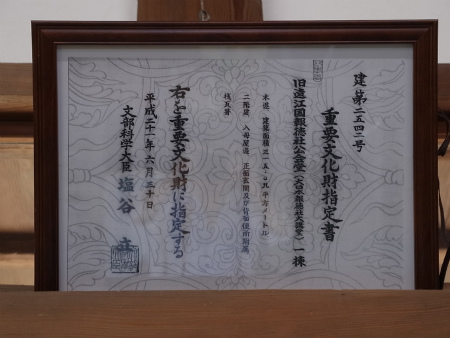 建第二五四二号
重要文化財指定書
旧遠江国報徳社公会堂(大日本報徳社大講堂) 一棟
木造、建築面積三一五・〇九平方メートル
二階建、入母屋造、正面玄関及び背面便所附属
桟瓦葺
右を重要文化財に指定する
平成二十一年六月三十日
文部科学大臣 塩谷 立